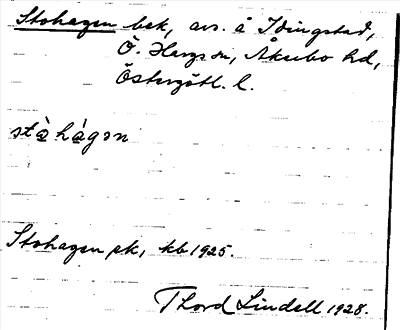 Stohagen bek, avs. å Idingstad,
Ö. Hargs sn, Åkerbo hd,
Östergötl. l.
stὰhágən
Stohagen ek, kb 1925.
Thord Lindell 1928.